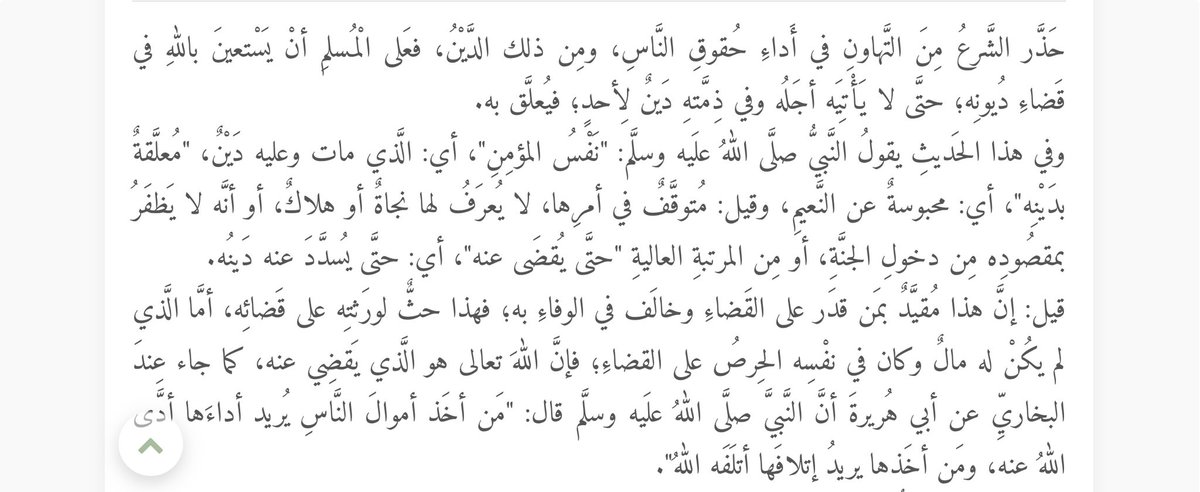 حَذَّر الشَّرعُ مِنَ التَّهاونِ في أَداءِ حُقوقِ النَّاسِ، ومِن ذلك الدَّيْنُ، فعَلى الْمُسلمِ أنْ يَسْتعينَ باللهِ في
قَضاءِ دُيونِه؛ حتَّى لا يَأْتيَه أجَلُه وفي ذِمَّتهِ دَينٌ لِأحدٍ؛ فيُعلَّق به.
وفي هذا الحَديثِ يقولُ النَّبيُّ صلَّى اللهُ علَيه وسلَّم: "نَفْسُ المؤمِنِ"، أي: الَّذي مات وعليه دَيْنٌ، "مُعلَّقةٌ
بدَيْنِه"، أي: محبوسةٌ عن النَّعيمِ، وقيل: مُتوقَّفٌ في أمرِها، لا يُعرَفُ لها نجاةٌ أو هلاكٌ، أو أنَّه لا يَظفَرُ
بمقصُودِه مِن دخولِ الجنَّةِ، أو مِن المرتبةِ العاليةِ "حتَّى يُقضَى عنه"، أي: حتَّى يُسدَّدَ عنه دَينُه.
قيل: إنَّ هذا مُقيَّدٌ بمَن قدَر على القَضاءِ وخالَف في الوفاءِ به؛ فهذا حثٌّ لورَثتِه على قَضائِه، أمَّا الَّذي
لم يكُنْ له مالٌ وكان في نفْسِه الحِرصُ على القضاءِ؛ فإنَّ اللهَ تعالى هو الَّذي يَقضِي عنه، كما جاء عِندَ
البخاريِّ عن أبي هُريرةَ أنَّ النَّبيَّ صلَّى اللهُ علَيه وسلَّم قال: "مَن أخَذ أموالَ النَّاسِ يُريد أداءَها أدَّى
اللهُ عنه، ومَن أخَذها يريدُ إتلافَها أتلَفَه اللهُ".